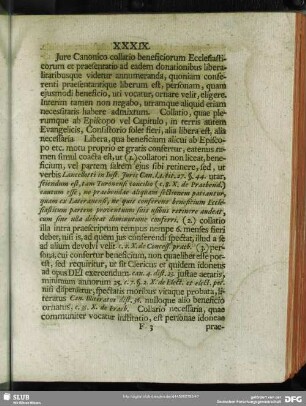 XXXIX.
Jure Canonico collatio beneficiorum Ecclesiasti-
corum et praesentatio ad eadem donationibus libera-
litatibusque videtur annumeranda, quoniam confe-
renti praesentantique liberum est, personam, quam
ejusmodi beneficio, uti vocatur, ornare velit, eligere.
Interim tamen non negabo, utramque aliquid etiam
necessitatis habere admixtum. Collatio, quae ple-
rumque ab Episcopo vel Capitulo, in terris autem
Evangelicis, Consistorio solet fieri, alia libera est, alia
necessaria. Libera, qua beneficium alicui ab Episco-
po etc. motu proprio et gratis confertur, eatenus ta-
men simul coacta est, ut (1.) collatori non liceat, bene-
ficium, vel partem saltem ejus sibi retinere, sed, ut
verbis Lancelotti in Inst. Juris Can. Lib. tit. 27. §. 44. utar,
sciendum est, tam Turonensi concilio
cautum esse, ne praebendae aliquam sectionem patiantur,
quam ex Lateranensi, ne quis conferens beneficium Eccle-
siasticum partem proventuum suis usibus retinere audeat,
cum sine ulla debeat diminutione conferri. (2.) collatio
illa intra praescriptum tempus nempe 6. menses fieri
debet, nisi is, ad quem jus conferendi spectat, illud a se
ad alium devolvi velit c. 2. X. de Concess. praeb. (3.) per-
sona, cui confertur beneficium, non qualiber esse pot-
est, sed requiritur, ut sit Clericus et quidem idoneus
ad opus DEI exercendum can. 4. dist. 23. justae aetatis,
minimum annorum 25. c. 7. §. 2. X. de Elect. et elect. pot.
nisi dispensetur, spectatis moribus vitaque probata, li-
teratus nulloque alio beneficio
ornatus. Collatio necessaria, quae
communiter vocatur institutio, est personae idoneae
F 3
prae-
SLUB
DFG